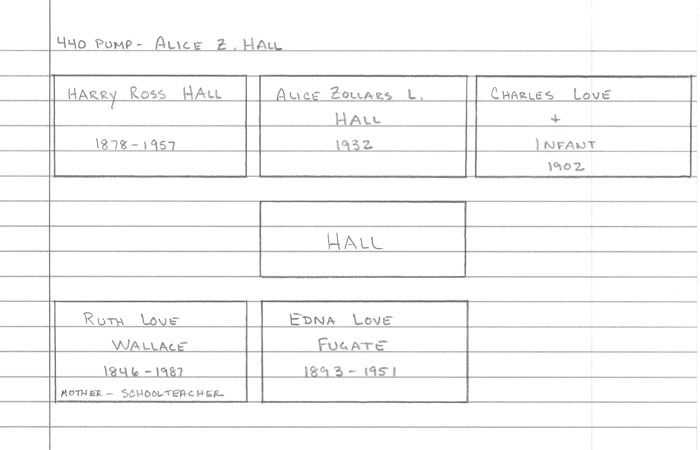 440 PUMP - ALICE Z. HALL
HARRY ROSS HALL
1878-1957
ALICE ZOLLARS L.
HALL
1932
CHARLES LOVE
+
INFANT
1902
HALL
RUTH LOVE
WALLACE
1846-1987
MOTHER - SCHOOLTEACHER
EDNA LOVE
FUGATE
1893-1951